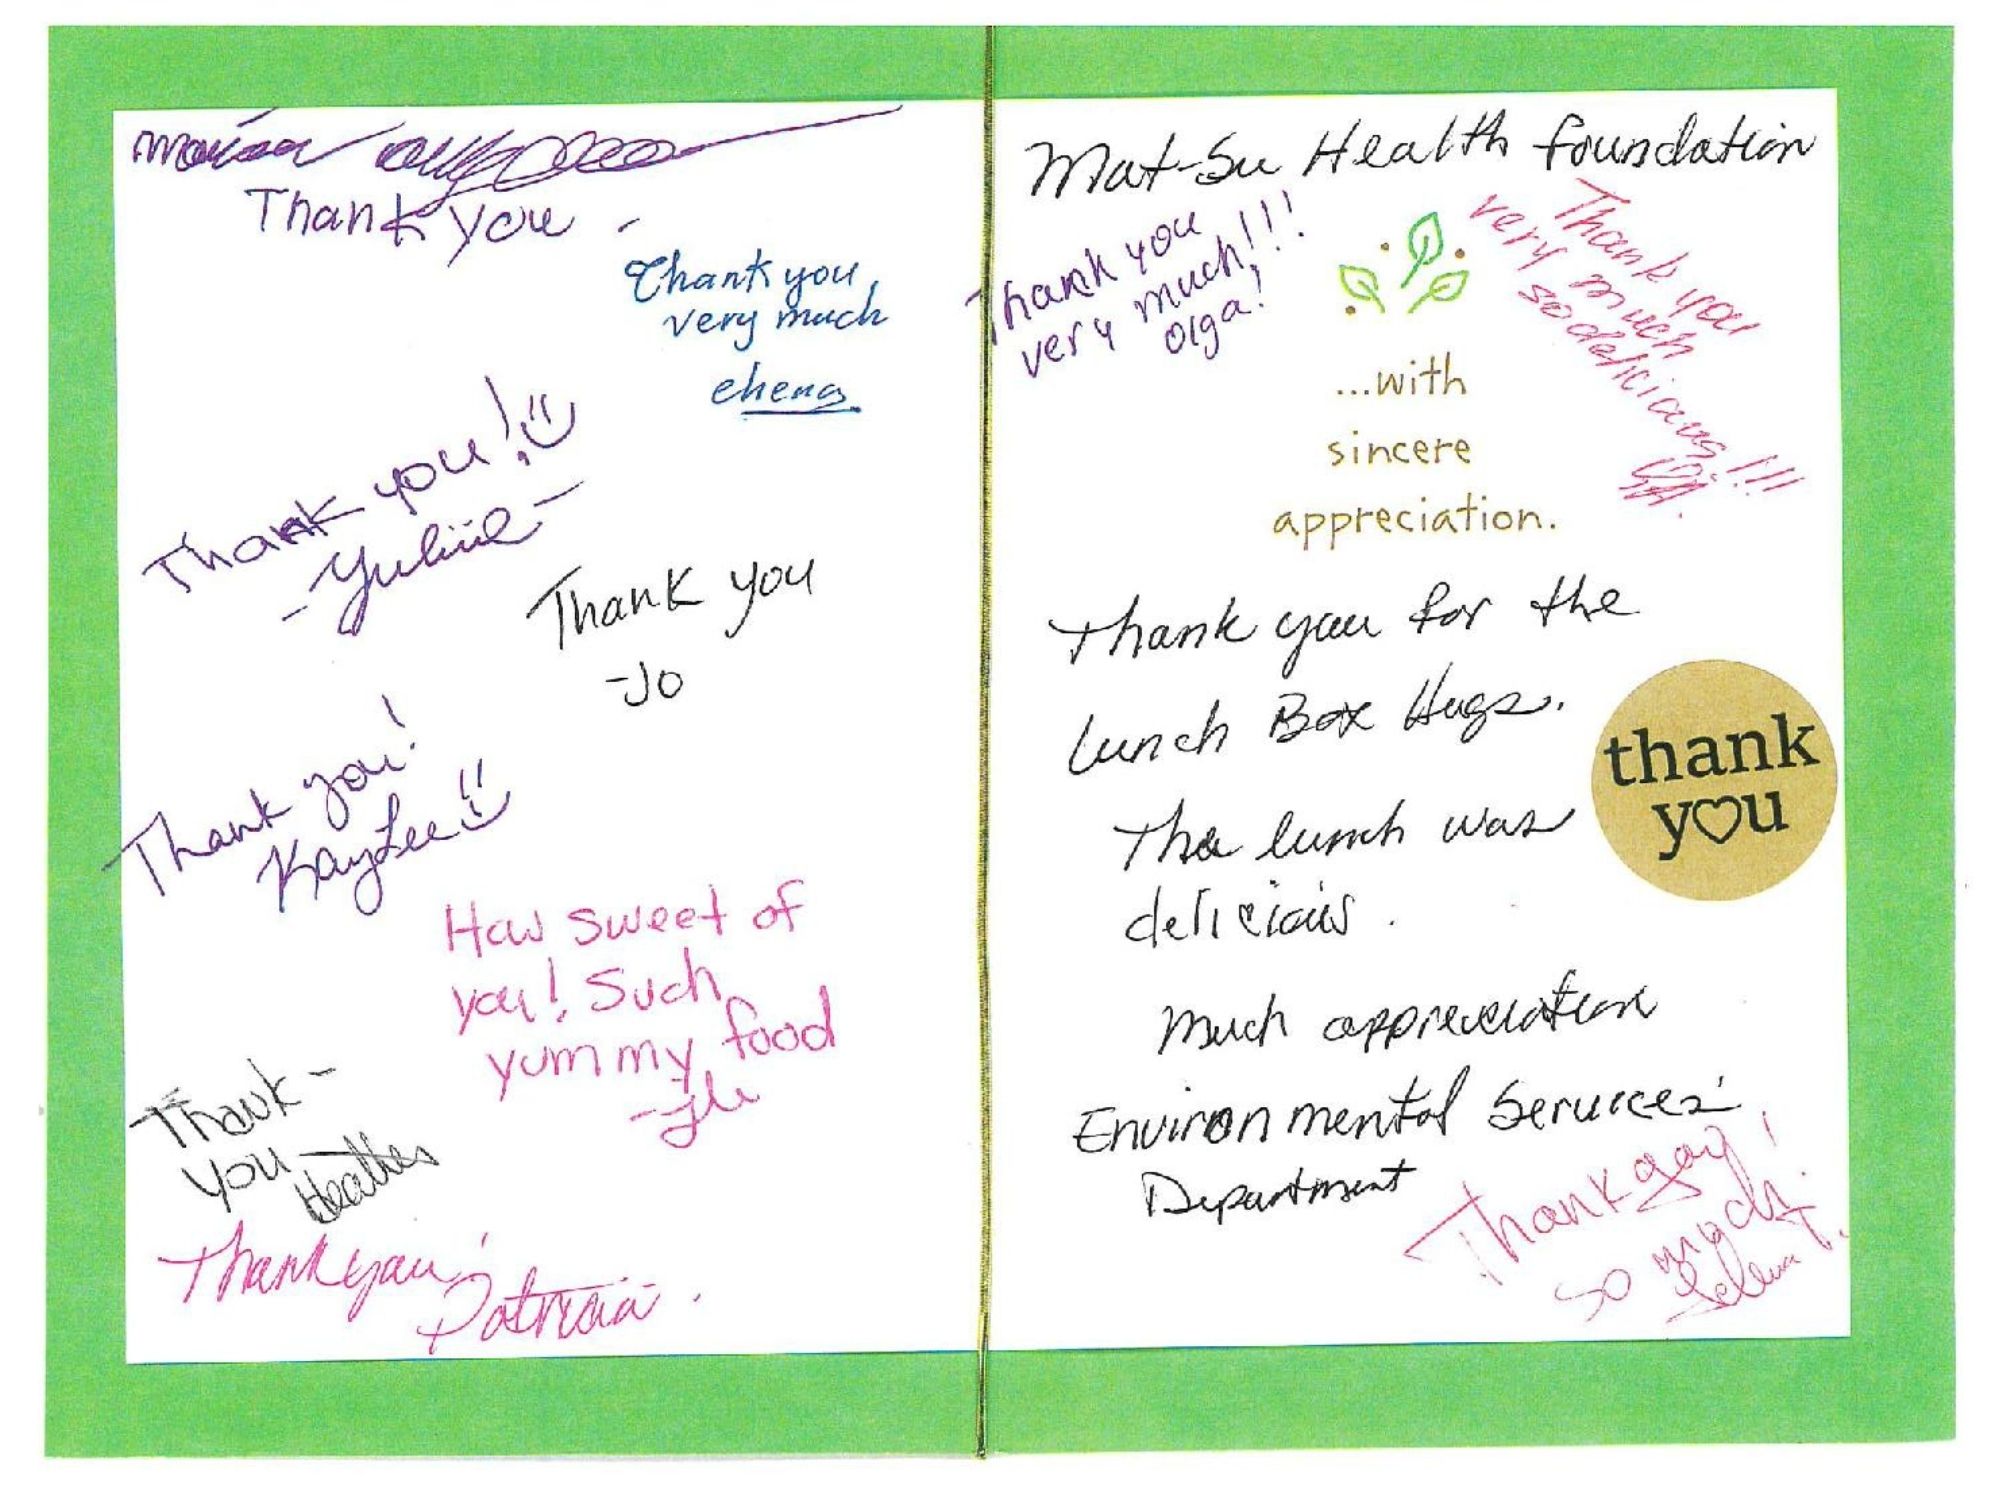 Thank you -
Thank you
very much
cheng
Thank you!
- Yuliia -
Thank you
-Jo
Thank you!
KayLee
How sweet of
you! Such
yummy food
Thank-
you
Heather
Thank you!
Patricia.
Mat-Su Health foundation
Thank you
very much!!!
Olga!
Thank you
very much
so delicious!!!
...with
sincere
appreciation.
Thank you for the
Lunch Box Hugs.
The lunch was
delicious.
thank
you
Much appreciation
Environmental Services
Department
Thank you!
so much!
Selena T.